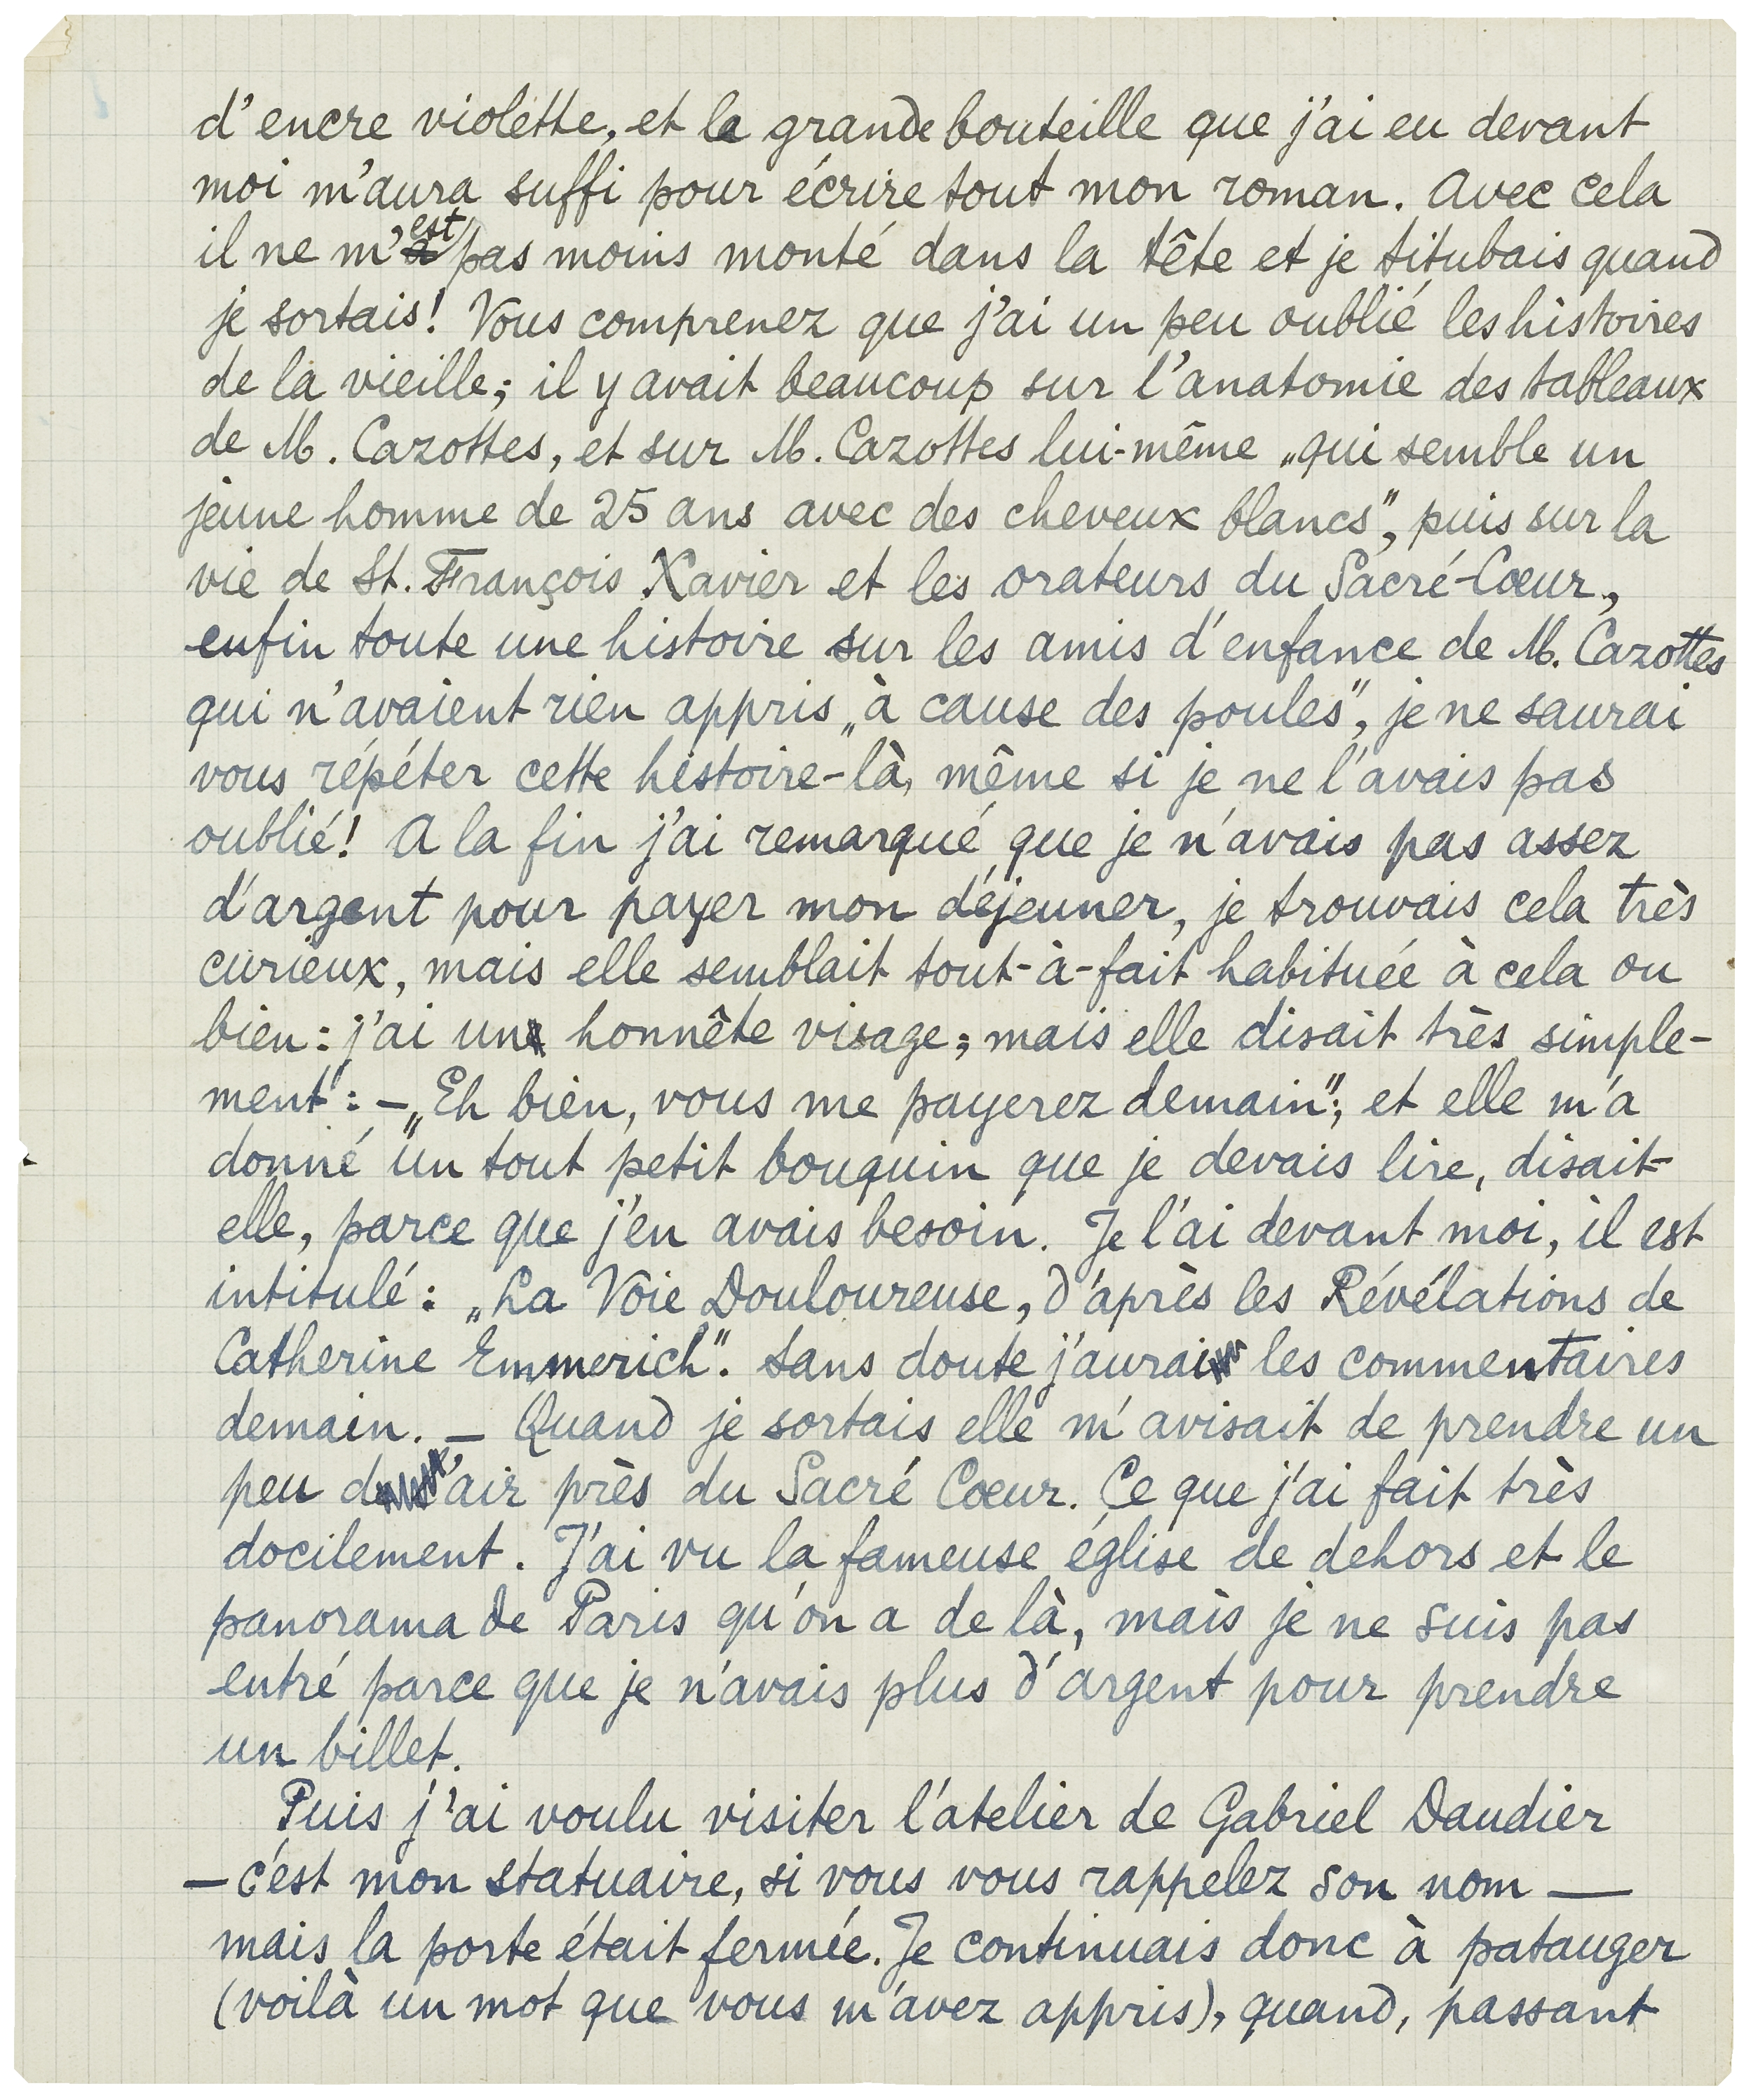 d'encre violette, et la grande bouteille que j'ai eu devant
moi m'aura suffi pour écrire tout mon roman. Avec cela
il ne m'est pas moins monté dans la tête et je titubais quand
je sortais! Vous comprenez que j'ai un peu oublié les histoires
de la vieille; il y avait beaucoup sur l'anatomie des tableaux
de M. Cazottes, et sur M. Cazottes lui-même „qui semble un
jeune homme de 25 ans avec des cheveux blancs", puis sur la
vie de St. François Xavier et les orateurs du Sacré-Cœur,
enfin toute une histoire sur les amis d'enfance de M. Cazottes
qui n'avaient rien appris „à cause des poules", je ne saurai
vous répéter cette histoire-là, même si je ne l'avais pas
oublié! A la fin j'ai remarqué que je n'avais pas assez
d'argent pour payer mon déjeuner, je trouvais cela très
curieux, mais elle semblait tout-à-fait habituée à cela ou
bien: j'ai un honnête visage; mais elle disait très simple-
ment: – „Eh bien, vous me payerez demain"; et elle m'a
donné un tout petit bouquin que je devais lire, disait-
elle, parce que j'en avais besoin. Je l'ai devant moi, il est
intitulé: „La Voie Douloureuse, d'après les Révélations de
Catherine Emmerich". Sans doute j'aurai les commentaires
demain. – Quand je sortais elle m'avisait de prendre un
peu d'air près du Sacré Cœur. Ce que j'ai fait très
docilement. J'ai vu la fameuse église de dehors et le
panorama de Paris qu'on a de là, mais je ne suis pas
entré parce que je n'avais plus d'argent pour prendre
un billet.
Puis j'ai voulu visiter l'atelier de Gabriel Daudier
– c'est mon statuaire, si vous vous rappelez son nom –
mais la porte était fermée. Je continuais donc à patauger
(voilà un mot que vous m'avez appris), quand, passant